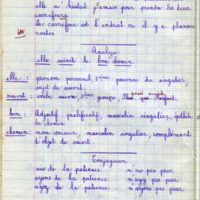 elle n'hésitait jamais pour prendre les deux
carrefours
le carrefour est l'endroit où il y a plusieurs
routes
Analyse
elle suivit le bon chemin
elle : pronom personnel, 3ème personne du singulier,
sujet de suivit.
suivit : verbe suivre, 3ème groupe
bon : adjectif qualificatif, masculin singulier,
de chemin
chemin : nom commun, masculin singulier, complément
d'objet de suivit.
Conjugaison
aie de la patience n'aie pas peur
ayons de la patience n'ayons pas peur
ayez de la patience n'ayez pas peur